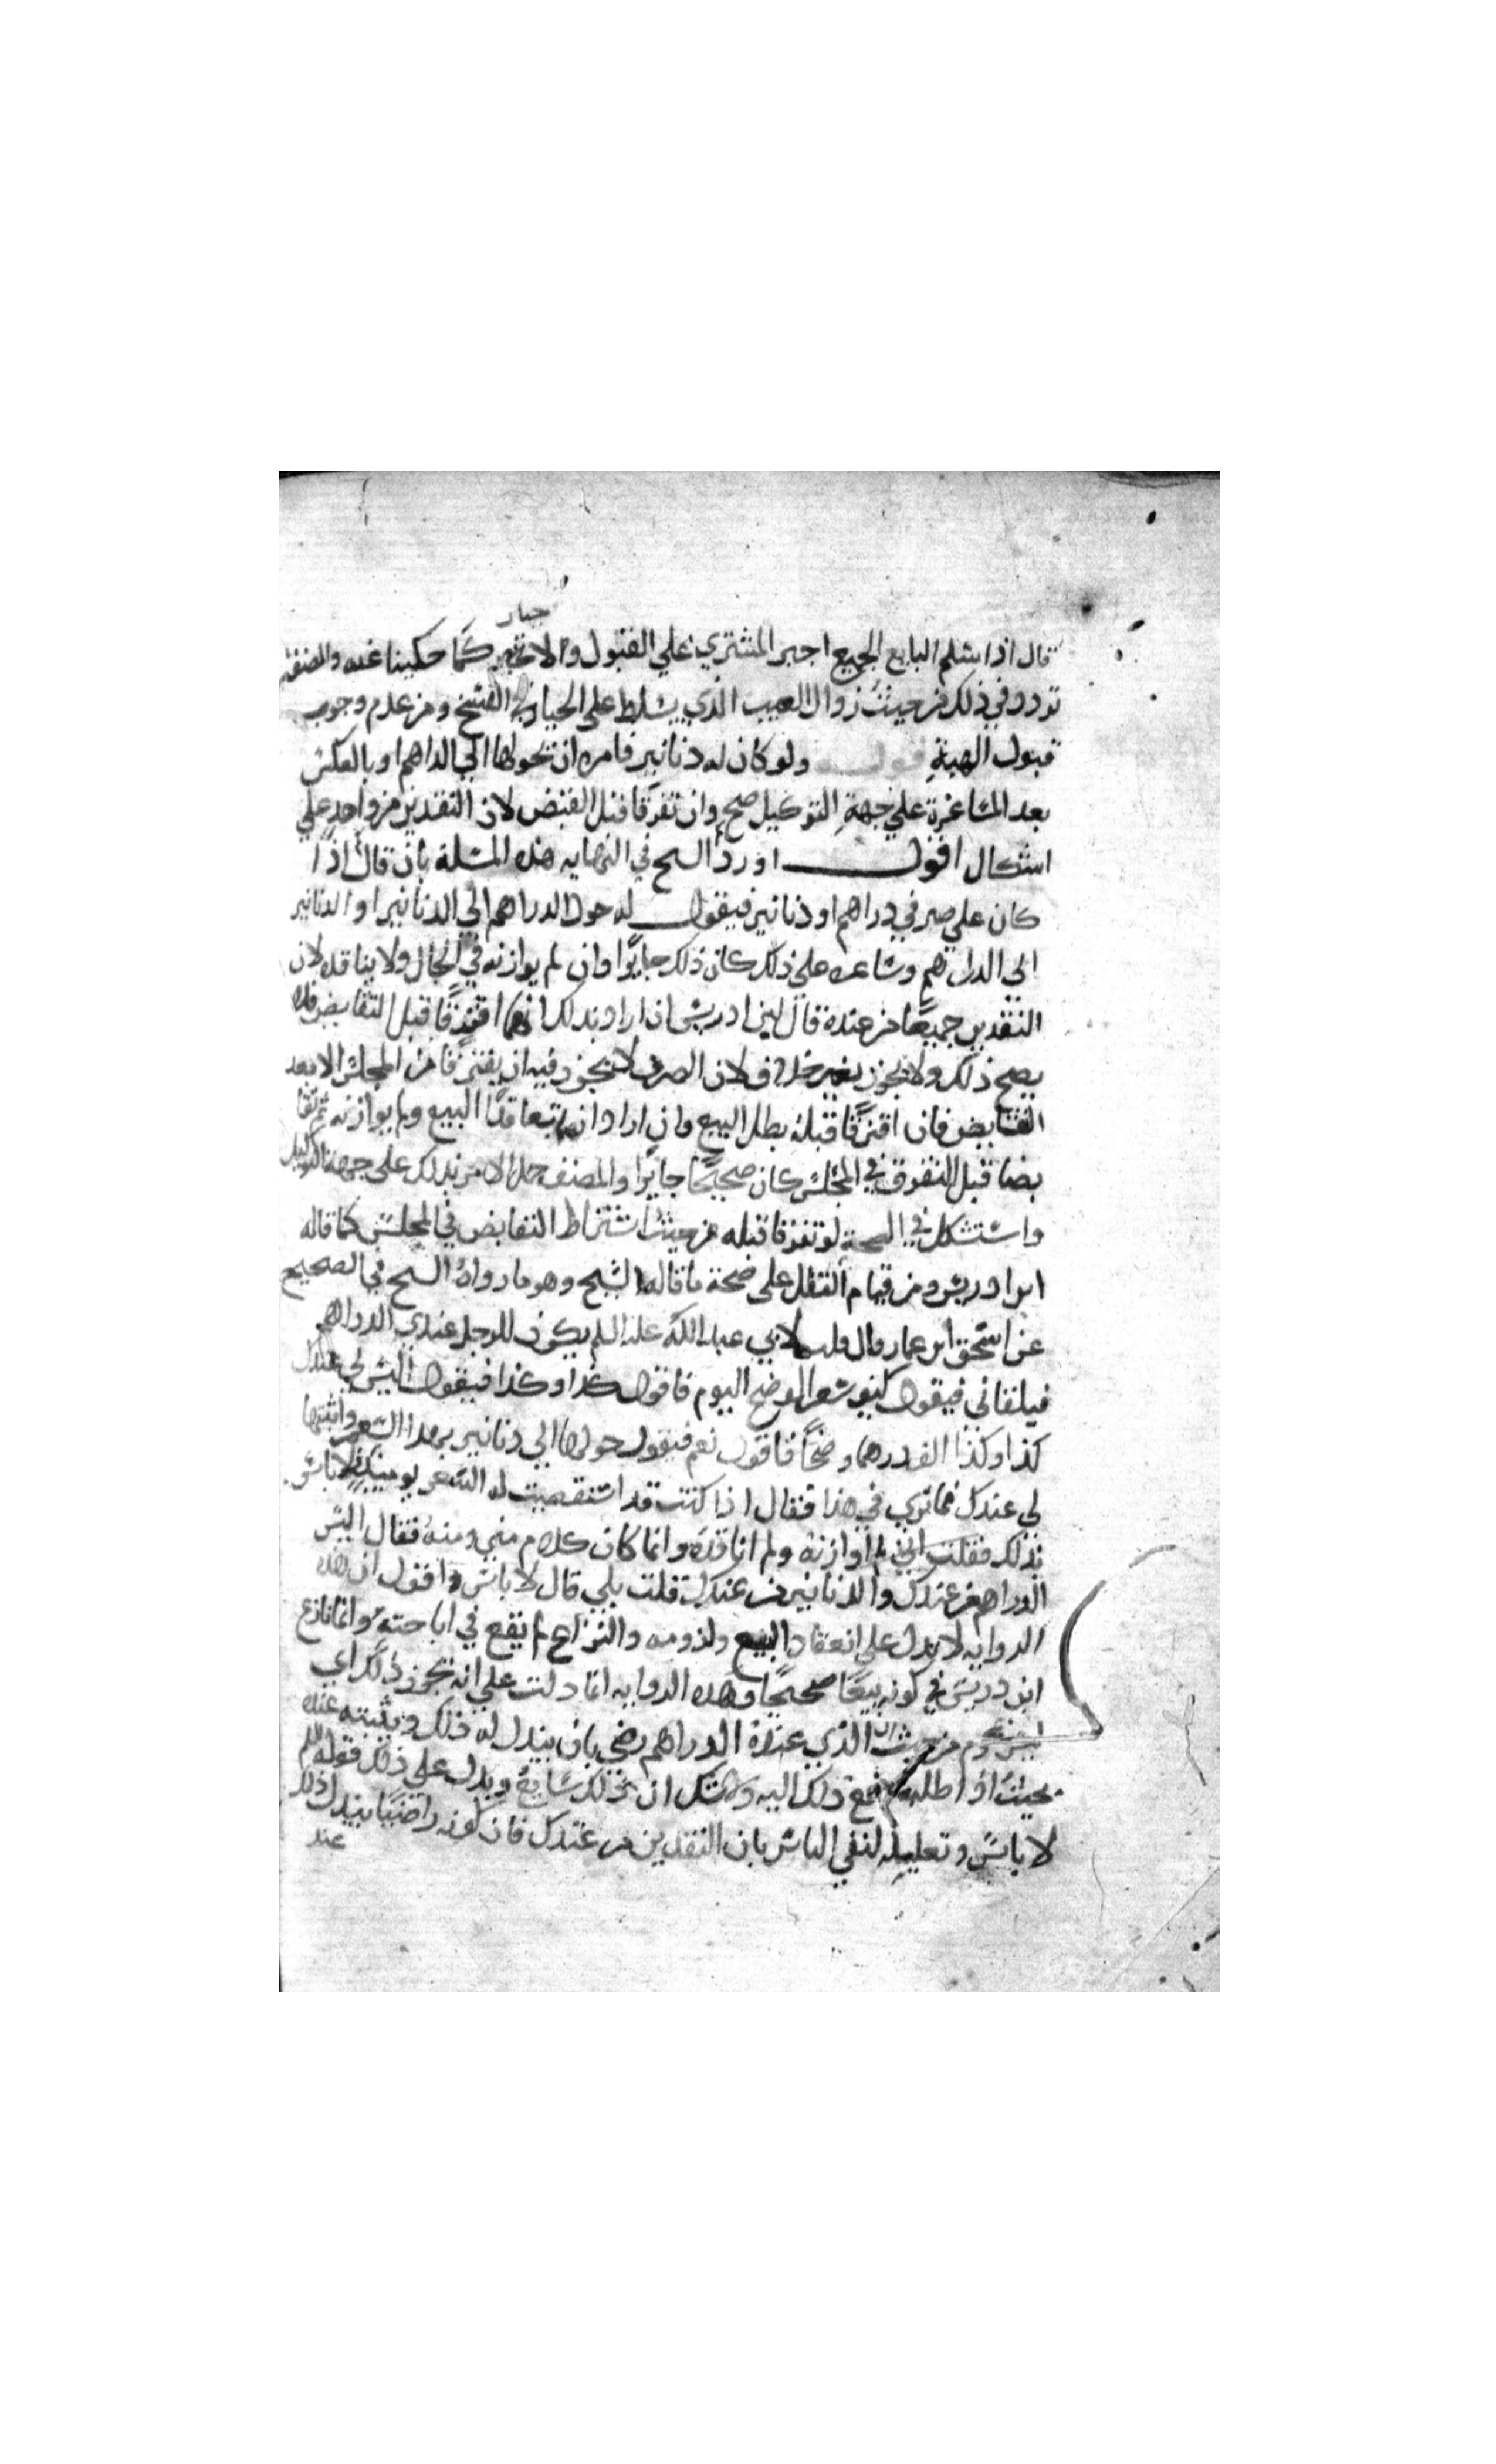 قال اذا سلم البايع الجميع اجبر المشتري علي القبول والا تخير كما حكيناعنه والمصنف
جبار
تردد في ذلك فمن حيث زوال العيب الذي يسلط علي الخيار في الفسخ ومن عدم وجوب
قبول الهبة قوله ولو كان له دنانير فامره ان يحولها الي الداهم او بالعكس
بعد المساعرة علي جهة التوكيل صح وان تفرقا قبل القبض لان النقدين من واحد علي
اشكال اقول اورد السح في النهايه هذه المسلة بان قال اذا
كان علي صيرفي دراهم او دنانير فيقول له حول الدراهم الي الدنانير او الدنانير
الي الدراهم وساعره علي ذلك كان ذلك جايزا وان لم يوازنه في الحال ولا يناقده لان
النقدين جميعا من عنده قال ابن ادريس ان اراد بذلك انهما افترقا قبل التقابض فلا
يصح ذلك ولا يجوز بغير خلاف لان الصرف لا يجوز فيه ان يفترقا من المجلس الا بعد
التقابض فان افترقا قبله بطل البيع وان اراد انهما تعاقدا البيع ولم يوازنه ثم تقا
بضا قبل التفرق في المجلس كان صحيحا جايزا والمصنف حمل الامر بذلك علي جهة التوكيل
واستشكل في الصحة لو تفرقا قبله من حيث اشتراط التقابض في المجلس كما قاله
ابن ادريس ومن قيام النقل علي صحة ما قاله الشيخ وهو ما رواه السح في الصحيح
عن اسحق ابن عمار قال قلت لابي عبد الله عليه السلم يكون للرجل عندي الدراهم
فيلقاني فيقول كيف سعر الوضح اليوم فاقول كذا وكذا فيقول اليس لي عندك
كذا وكذا الف درهما وضحا فاقول نعم فيقول حولها الي دنانير بهذا السعر واثبتها
لي عندك فما تري في هذا فقال اذا كنت قد استقصيت له السعر يوميذ فلا باس
بذلك فقلت اني لم اوازنه ولم اناقده وانما كان كلام مني ومنه فقال اليس
الدراهم من عندك والدنانير من عندك قلت بلي قال لا باس واقول ان هذه
الروايه لا تدل علي انعقاد البيع ولزومه والنزاع لم يقع في اباحته وانما نازع
ابن دريس في كونه بيعا صحيحا وهذه الروايه انما دلت علي انه يجوز ذلك اي
من حيث ان الذي عنده الدراهم رضي بان يبدل له ذلك ويثبته عنده
بحيث اذا طلبه دفع ذلك اليه ولا شك ان ذلك سايغ ويدل علي ذلك قوله
لا باس وتعليله لنفي الباس بان النقدين من عندك فان كونه راضيا يبدل ذلك
عند